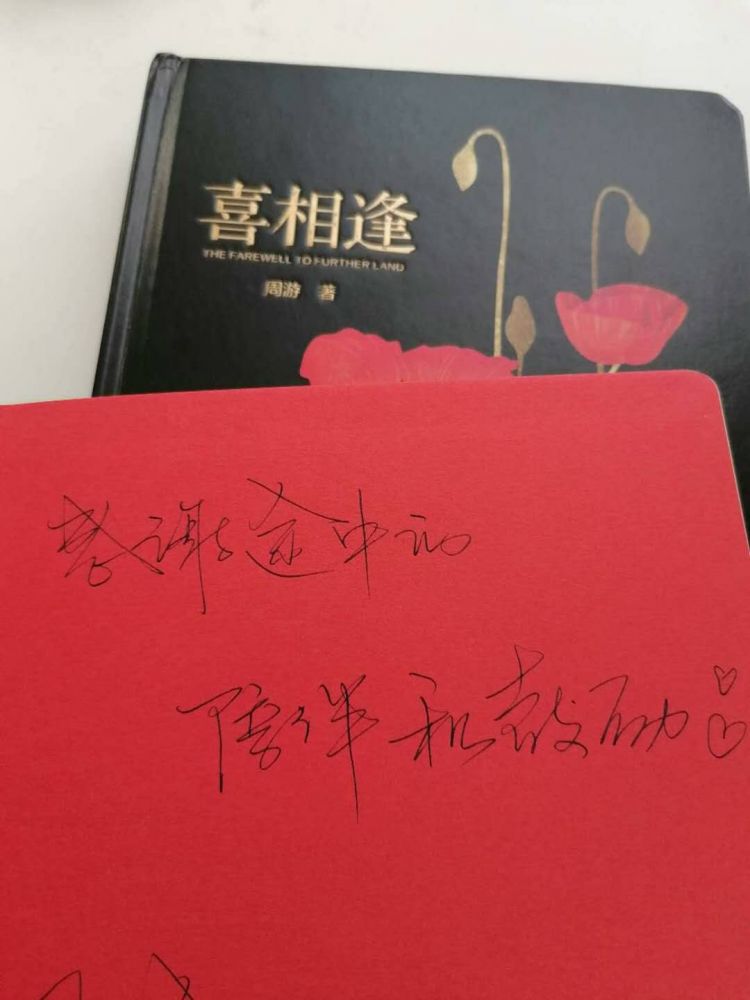 喜相逢
THE FAREWELL TO FURTHER LAND
周游 著
感谢途中的
陪伴和鼓励